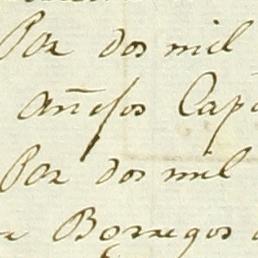 Por dos mil
añejos Cap
Por dos mil
Borregos